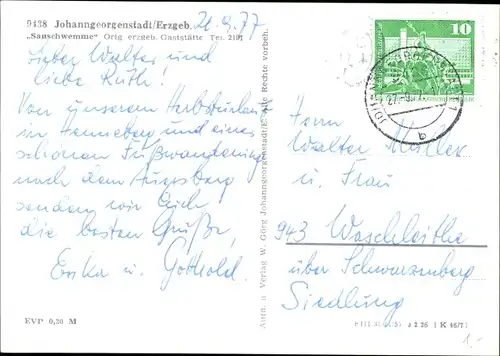 9438 Johanngeorgenstadt/Erzgeb.
20.9.77
"Sauschwemme" Orig erzgeb. Gaststätte Tel. 2191
Lieber Walter und
liebe Ruth!
Von unserem Herbsturlaub
in Henneberg und einer
schönen Fußwanderung
nach dem Auersberg
senden wir Euch
die besten Grüße,
Erika u. Gotthold.
EVP 0,20 M
Aufn. u. Verlag W. Görg Johanngeorgenstadt/E. Alle Rechte vorbeh.
10
b
Herrn
Walter Müller
u. Frau
943 Waschleithe
über Schwarzenberg
Siedlung
K 46/77
1,-